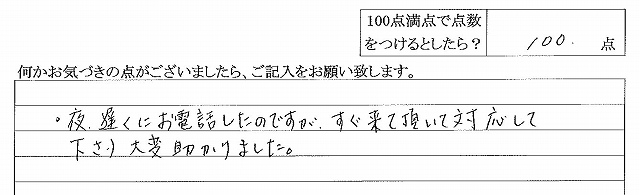 100点満点で点数
をつけるとしたら？
100. 点
何かお気づきの点がございましたら、ご記入をお願い致します。
・夜、遅くにお電話したのですが、すぐ来て頂いて対応して
下さり大変助かりました。